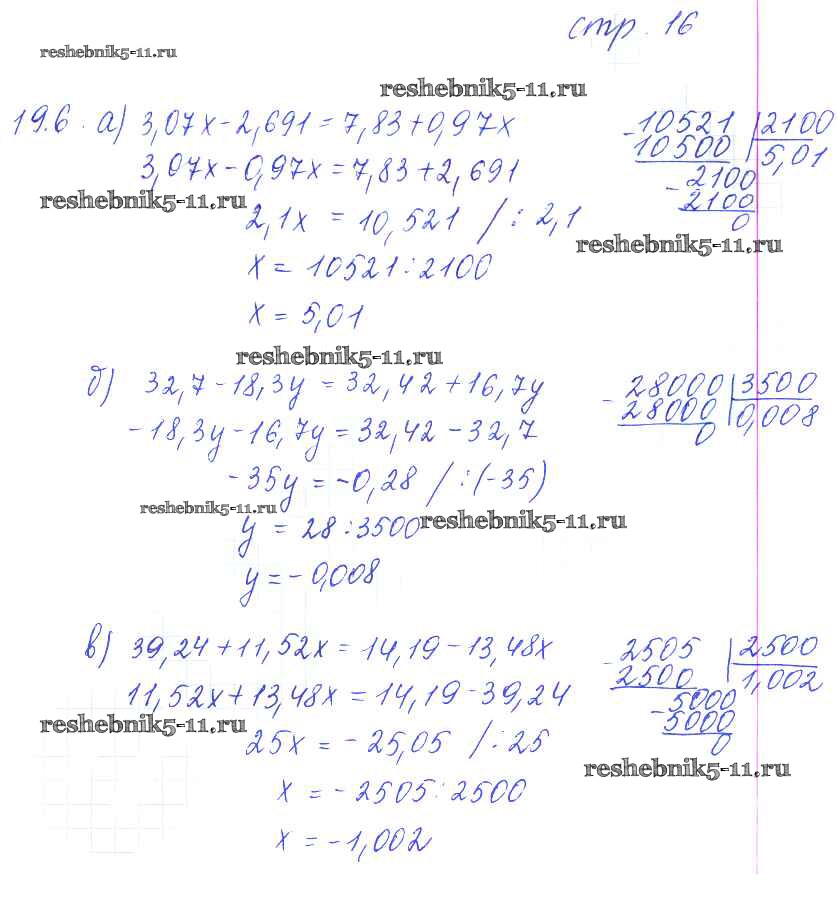 стр. 16
reshebnik5-11.ru
reshebnik5-11.ru
19.6. а) 3,07x - 2,691 = 7,83 + 0,97x
3,07x - 0,97x = 7,83 + 2,691
reshebnik5-11.ru
2,1x = 10,521 / : 2,1
x = 10521 : 2100
x = 5,01
- 10521 | 2100
10500 5,01
- 2100
2100
0
reshebnik5-11.ru
reshebnik5-11.ru
б) 32,7 - 18,3y = 32,42 + 16,7y
- 18,3y - 16,7y = 32,42 - 32,7
- 35y = - 0,28 / : (-35)
reshebnik5-11.ru
y = 28 : 3500
reshebnik5-11.ru
y = - 0,008
- 28000 | 3500
28000 0,008
0
в) 39,24 + 11,52x = 14,19 - 13,48x
11,52x + 13,48x = 14,19 - 39,24
reshebnik5-11.ru
25x = - 25,05 / : 25
x = - 2505 : 2500
x = - 1,002
- 2505 | 2500
2500 1,002
- 5000
5000
0
reshebnik5-11.ru